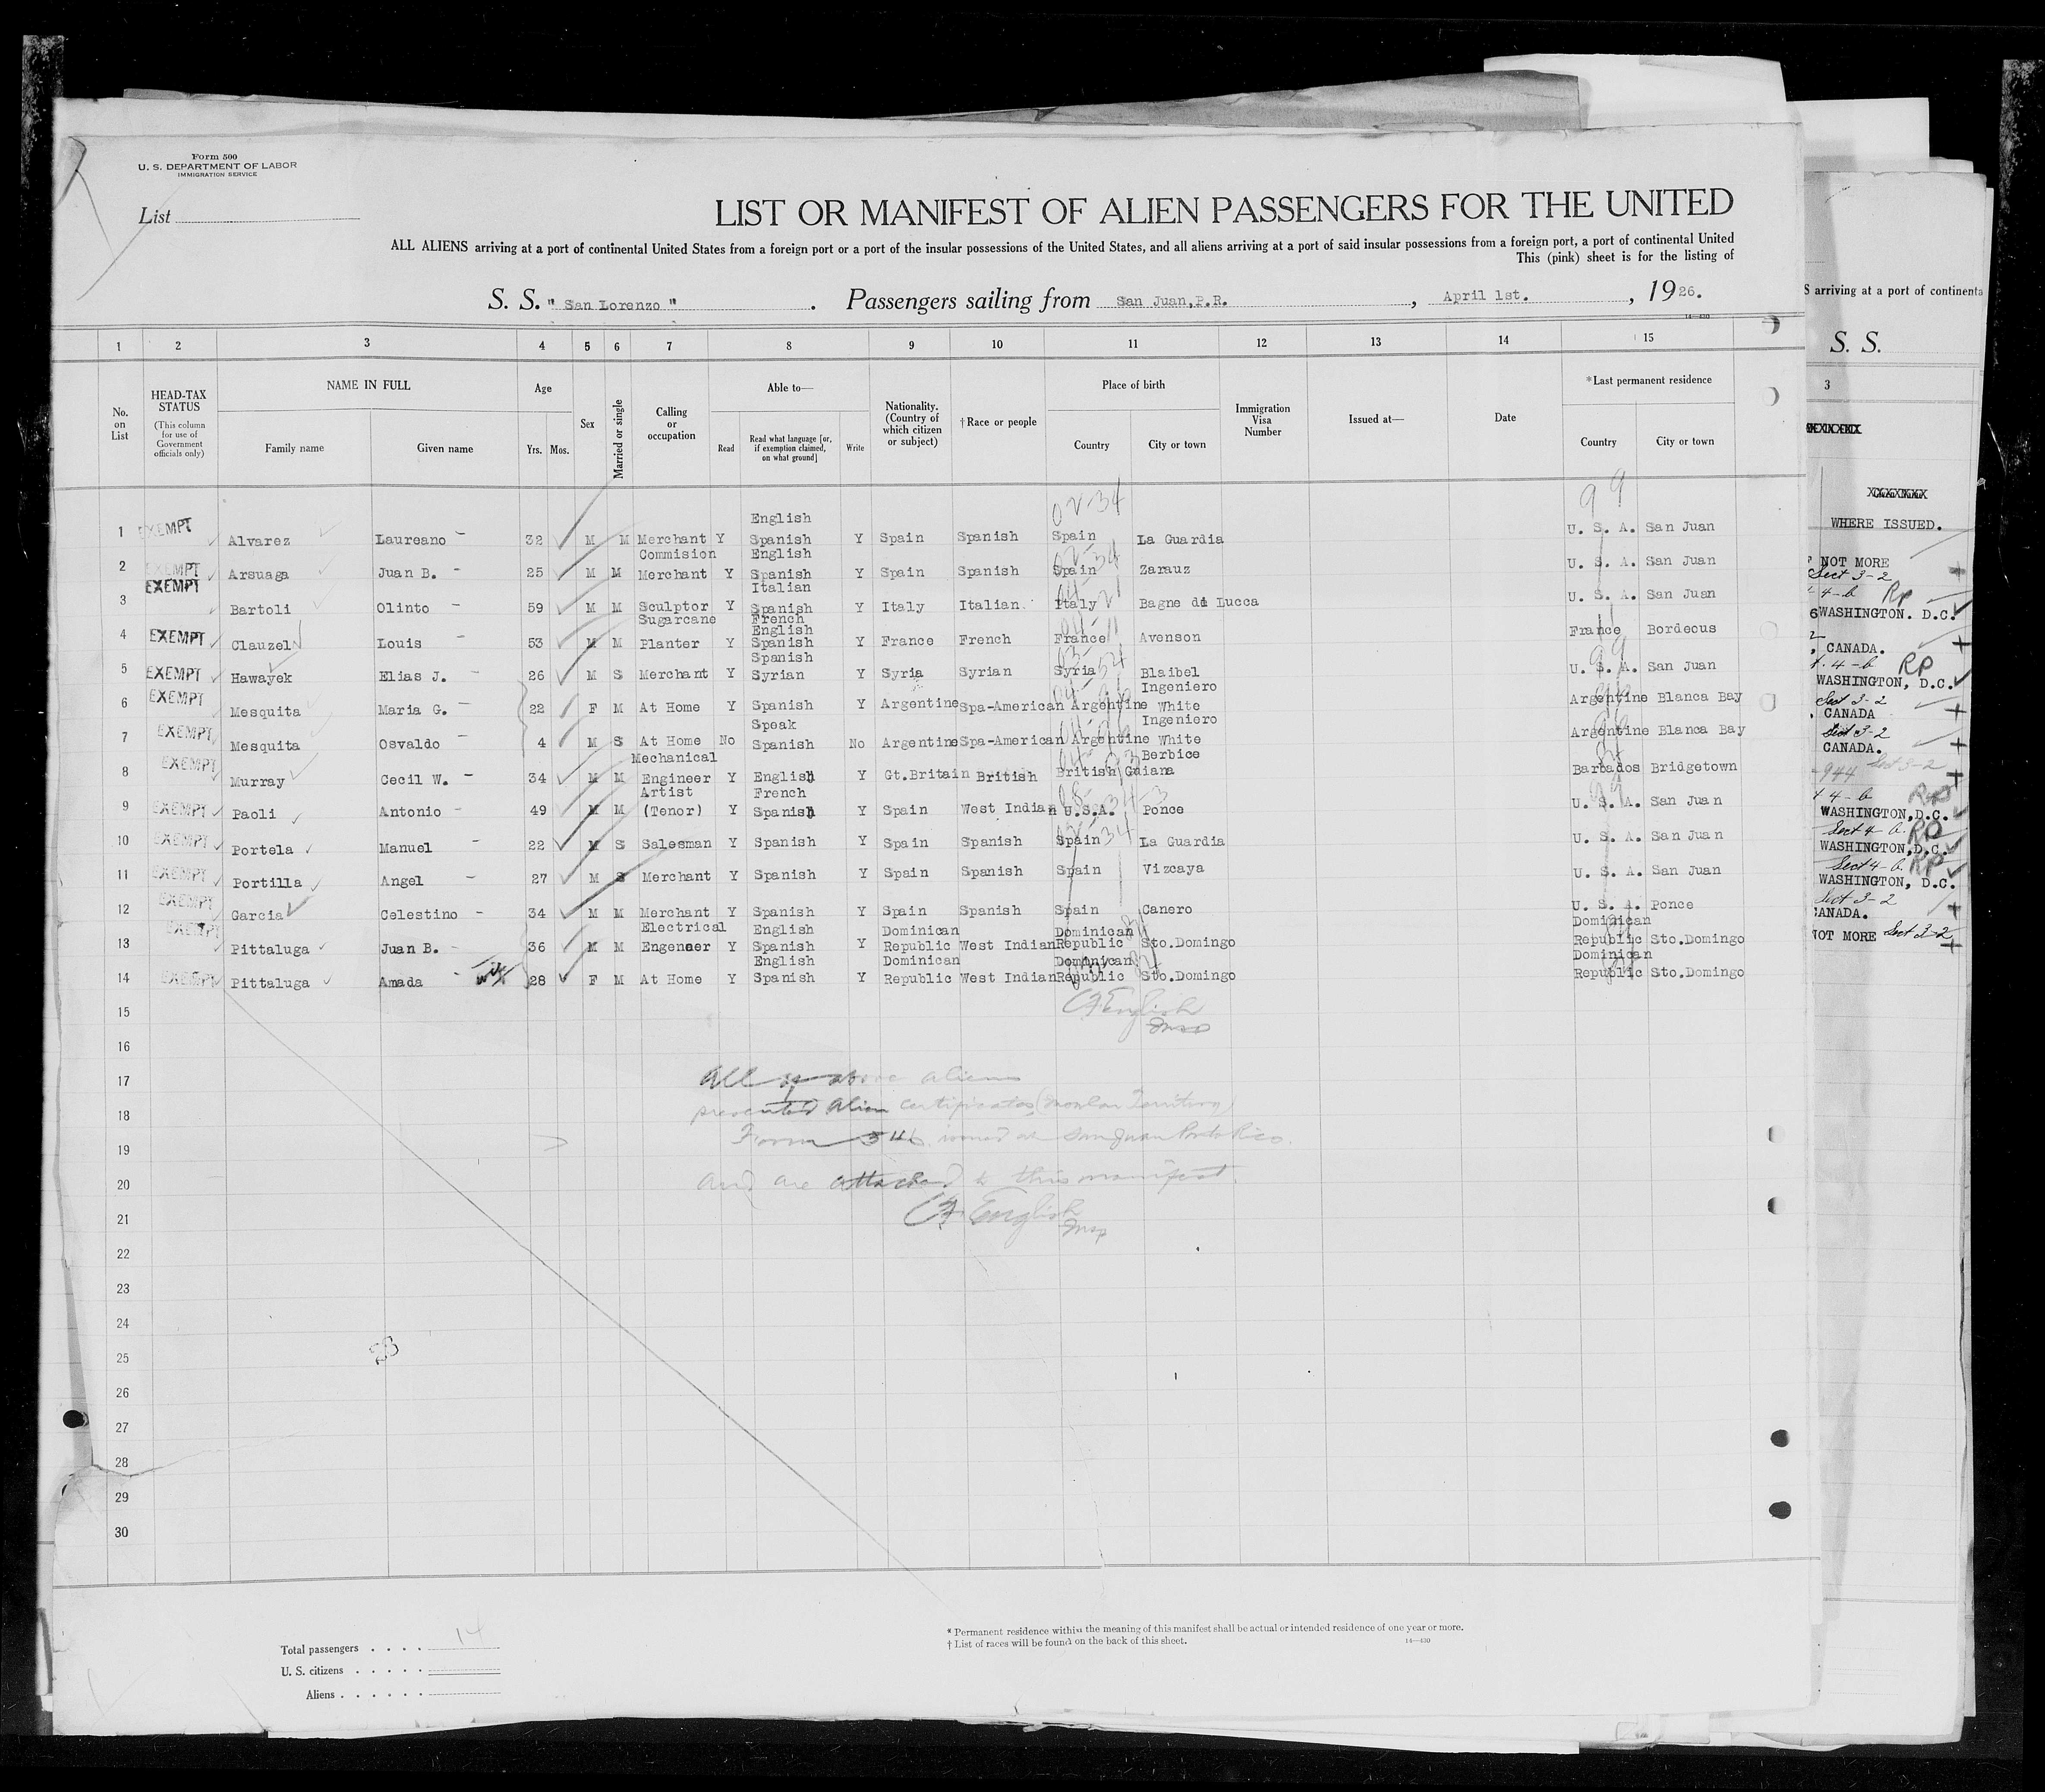 Form 500
U. S. DEPARTMENT OF LABOR
IMMIGRATION SERVICE
List
LIST OR MANIFEST OF ALIEN PASSENGERS FOR THE UNITED
ALL ALIENS arriving at a port of continental United States from a foreign port or a port of the insular possessions of the United States, and all aliens arriving at a port of said insular possessions from a foreign port, a port of continental United
This (pink) sheet is for the listing of
S. S. " San Lorenzo " . Passengers sailing from San Juan, P.R. , April 1st. , 1926.
14—430
1 2 3 4 5 6 7 8 9 10 11 12 13 14 15
No. on List
HEAD-TAX STATUS
(This column for use of Government officials only)
NAME IN FULL
Family name Given name
Age
Yrs. Mos.
Sex
Married or single
Calling or occupation
Able to—
Read Read what language [or, if exemption claimed, on what ground] Write
Nationality. (Country of which citizen or subject)
†Race or people
Place of birth
Country City or town
Immigration Visa Number
Issued at—
Date
*Last permanent residence
Country City or town
1 EXEMPT Alvarez Laureano 32 M M Merchant Y English Spanish Y Spain Spanish Spain La Guardia U. S. A. San Juan
2 EXEMPT Arsuaga Juan B. 25 M M Commision Merchant Y English Spanish Y Spain Spanish Spain Zarauz U. S. A. San Juan
3 EXEMPT Bartoli Olinto 59 M M Sculptor Y Italian Spanish Y Italy Italian Italy Bagne di Lucca U. S. A. San Juan
4 EXEMPT Clauzel Louis 53 M M Sugarcane Planter Y French English Spanish Y France French France Avenson France Bordeous
5 EXEMPT Hawayek Elias J. 26 M S Merchant Y Spanish Syrian Y Syria Syrian Syria Blaibel U. S. A. San Juan
6 EXEMPT Mesquita Maria G. 22 F M At Home Y Spanish Y Argentine Spa-American Argentine Ingeniero White Argentine Blanca Bay
7 EXEMPT Mesquita Osvaldo 4 M S At Home No Speak Spanish No Argentine Spa-American Argentine Ingeniero White Argentine Blanca Bay
8 EXEMPT Murray Cecil W. 34 M M Mechanical Engineer Y English Y Gt.Britain British British Guiana Berbice Barbados Bridgetown
9 EXEMPT Paoli Antonio 49 M M Artist (Tenor) Y French Spanish Y Spain West Indian U.S.A. Ponce U. S. A. San Juan
10 EXEMPT Portela Manuel 22 M S Salesman Y Spanish Y Spain Spanish Spain La Guardia U. S. A. San Juan
11 EXEMPT Portilla Angel 27 M S Merchant Y Spanish Y Spain Spanish Spain Vizcaya U. S. A. San Juan
12 EXEMPT Garcia Celestino 34 M M Merchant Y Spanish Y Spain Spanish Spain Canero U. S. A. Ponce
13 EXEMPT Pittaluga Juan B. 36 M M Electrical Engeneer Y English Spanish Y Dominican Republic West Indian Dominican Republic Sto.Domingo Dominican Republic Sto.Domingo
14 EXEMPT Pittaluga Amada 28 F M At Home Y English Spanish Y Dominican Republic West Indian Dominican Republic Sto.Domingo Dominican Republic Sto.Domingo
15 CF English
Insp
16
17 All of above aliens
18 presented alien certificates (Insular Territory)
19 Form 546 issued at San Juan Porto Rico.
20 and are attached to this manifest.
21 CF English
Insp
22
23
24
25
26
27
28
29
30
Total passengers . . . . 14
U. S. citizens . . . . .
Aliens . . . . . .
* Permanent residence within the meaning of this manifest shall be actual or intended residence of one year or more.
† List of races will be found on the back of this sheet.
14—430
S arriving at a port of continenta
S. S.
3
WHERE ISSUED.
NOT MORE
Sect 3-2
4-b RP
WASHINGTON. D.C.
CANADA.
4-b RP
WASHINGTON, D.C.
Sect 3-2
CANADA
Sect 3-2
CANADA.
944 Sect 3-2
4-b RP
WASHINGTON,D.C.
Sect 4 b. RP
WASHINGTON,D.C.
Sect 4 b. RP
WASHINGTON, D.C.
Sect 3-2
CANADA.
NOT MORE Sect 3-2